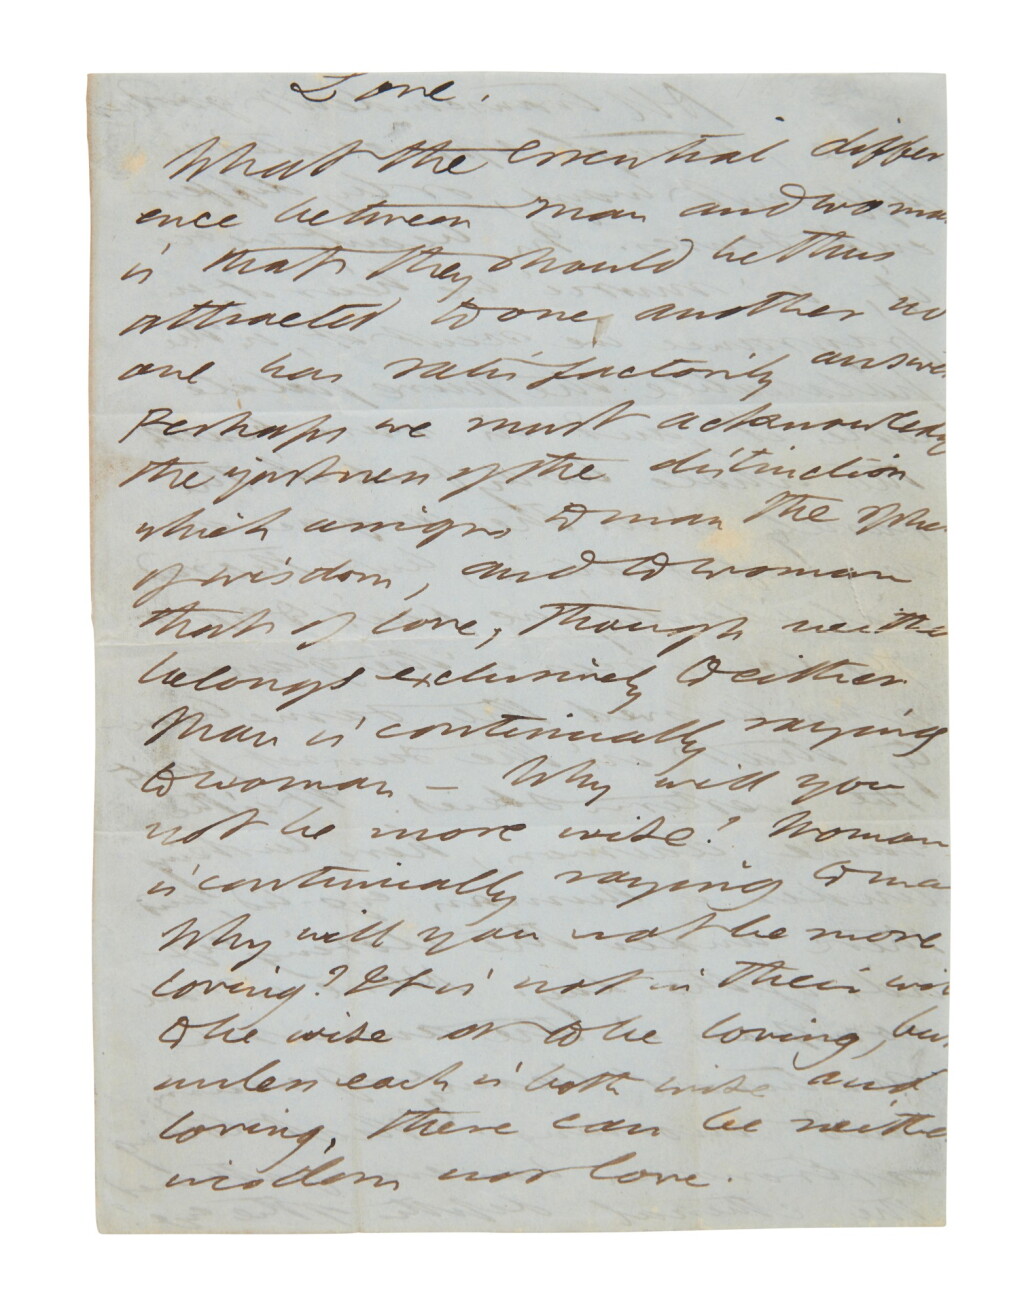 Love.
What the essential differ
ence between man and woma
is that they should be thus
attracted to one another no
one has satisfactorily answe
Perhaps we must acknowledg
the justness of the distinction
which assigns to man the sphe
of wisdom, and to woman
that of love, though neithe
belongs exclusively to either
Man is continually saying
to woman – Why will you
not be more wise? Woman
is continually saying to ma
Why will you not be more
loving? It is not in their wi
to be wise or to be loving, bu
unless each is both wise and
loving, there can be neithe
wisdom nor love.